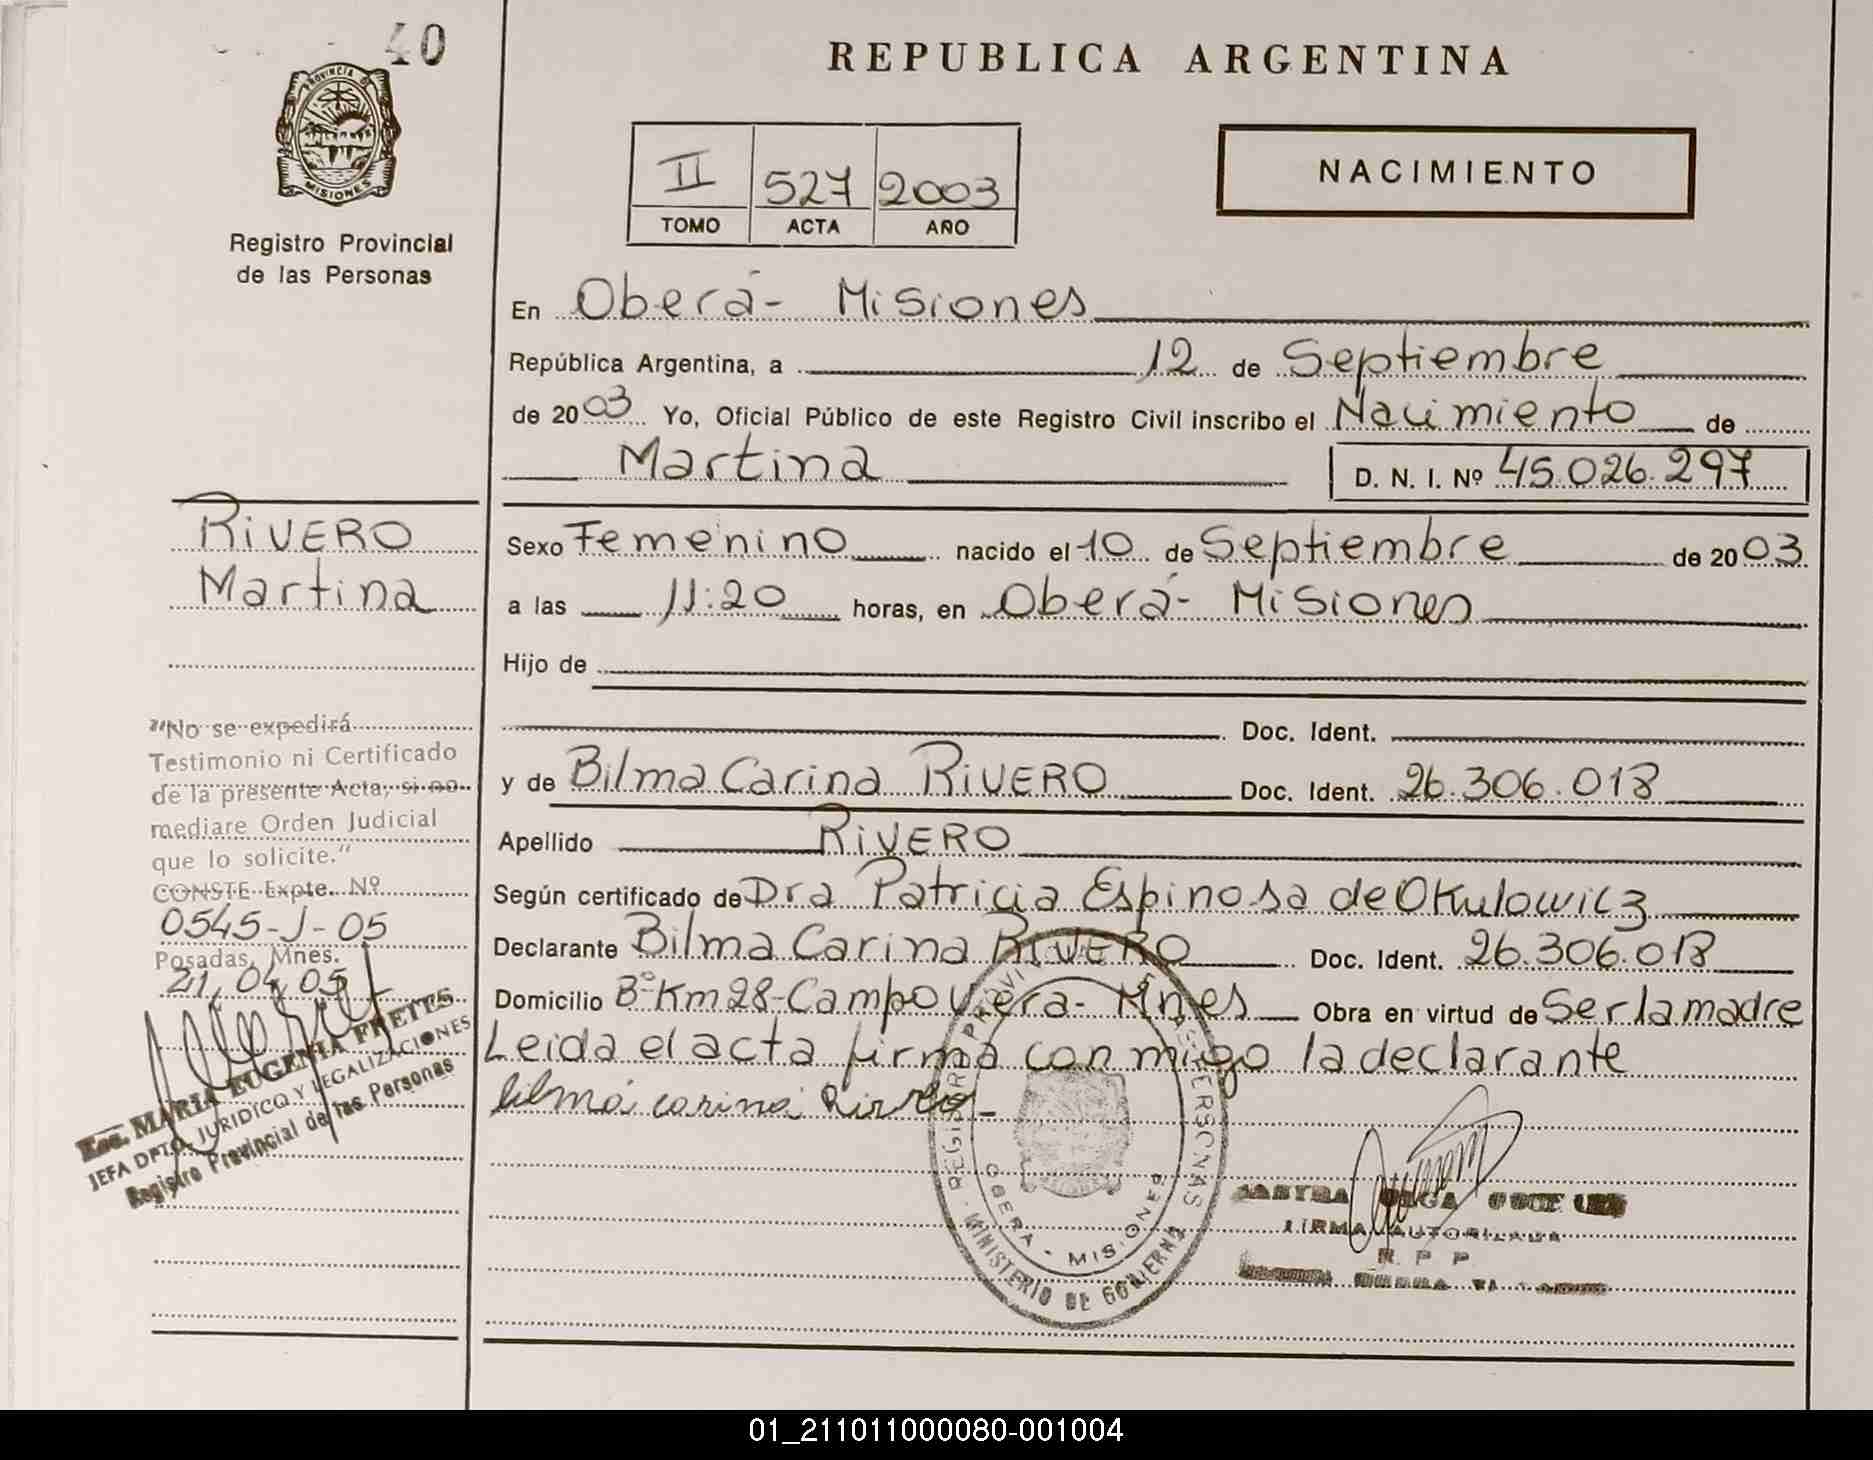 40
PROVINCIA DE
MISIONES
Registro Provincial
de las Personas
REPUBLICA ARGENTINA
II 527 2003
TOMO ACTA AÑO
NACIMIENTO
En Oberá - Misiones
República Argentina, a 12 de Septiembre
de 2003 Yo, Oficial Público de este Registro Civil inscribo el Nacimiento de
Martina D. N. I. Nº 45.026.297
RIVERO
Martina
Sexo Femenino nacido el 10 de Septiembre de 2003
a las 11:20 horas, en Oberá - Misiones
Hijo de
Doc. Ident.
y de Bilma Carina RIVERO Doc. Ident. 26.306.018
Apellido RIVERO
Según certificado de Dra Patricia Espinosa de Okulowicz
Declarante Bilma Carina RIVERO Doc. Ident. 26.306.018
Domicilio Bº Km 28 - Campo Viera - Mnes Obra en virtud de Ser la madre
Leida el acta firma con migo la declarante
bilma carina Rivero -
"No se expedirá
Testimonio ni Certificado
de la presente Acta, si no
mediare Orden Judicial
que lo solicite."
CONSTE Expte. Nº
0545-J-05
Posadas, Mnes.
21, 04, 05
Esc. MARIA EUGENIA FRETES
JEFA DPTO. JURIDICO Y LEGALIZACIONES
Registro Provincial de las Personas
OBERA - MISIONES
MINISTERIO DE GOBIERNO
OLGA
FIRMA AUTORIZADA
R. P. P.
01_211011000080-001004